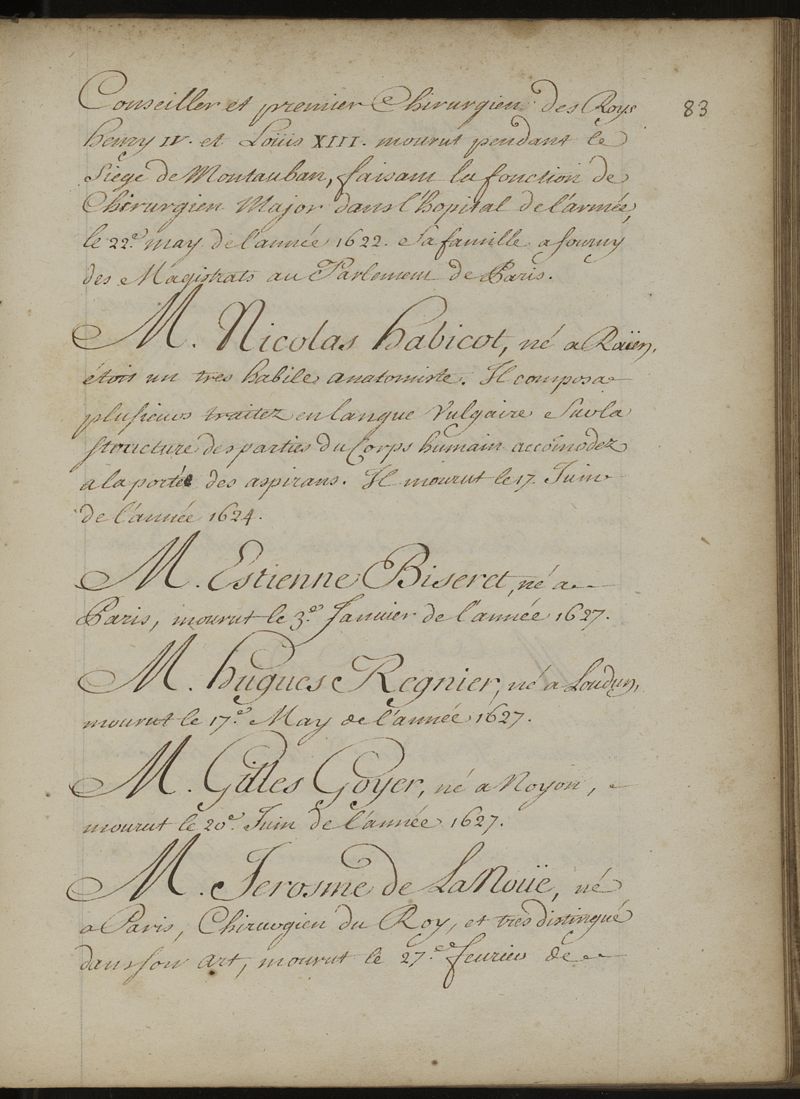 83
Conseiller et premier Chirurgien des Roys
henry IV. et Loüis XIII. mourut pendant le
Siege de Montauban, faisant la fonction de
Chirurgien Major dans l'hopital de l'armée,
le 22.e may de l'année 1622. Sa famille a fourny
des Magistrats au Parlement de Paris.
M. Nicolas habicot, né a
étoit un tres habile anatomiste. Il composa
plusieurs traitez en langue Vulgaire Sur la
structure des parties du Corps humain accõmodez
a la portée des aspirans. Il mourut le 17. Juin
de l'année 1624.
M. Estienne Biseret, né a
Paris, mourut le 3.e Janvier de l'année 1627.
M. hugues Regnier, né a Loudun,
mourut le 17.e May de l'année 1627.
M. Gilles Goyer, né a Noyon,
mourut le 20.e Juin de l'année 1627.
M. Jerosme de La Noüe, né
a Paris, Chirurgien du Roy, et tres distingué
dans son art, mourut le 27.e feurier de